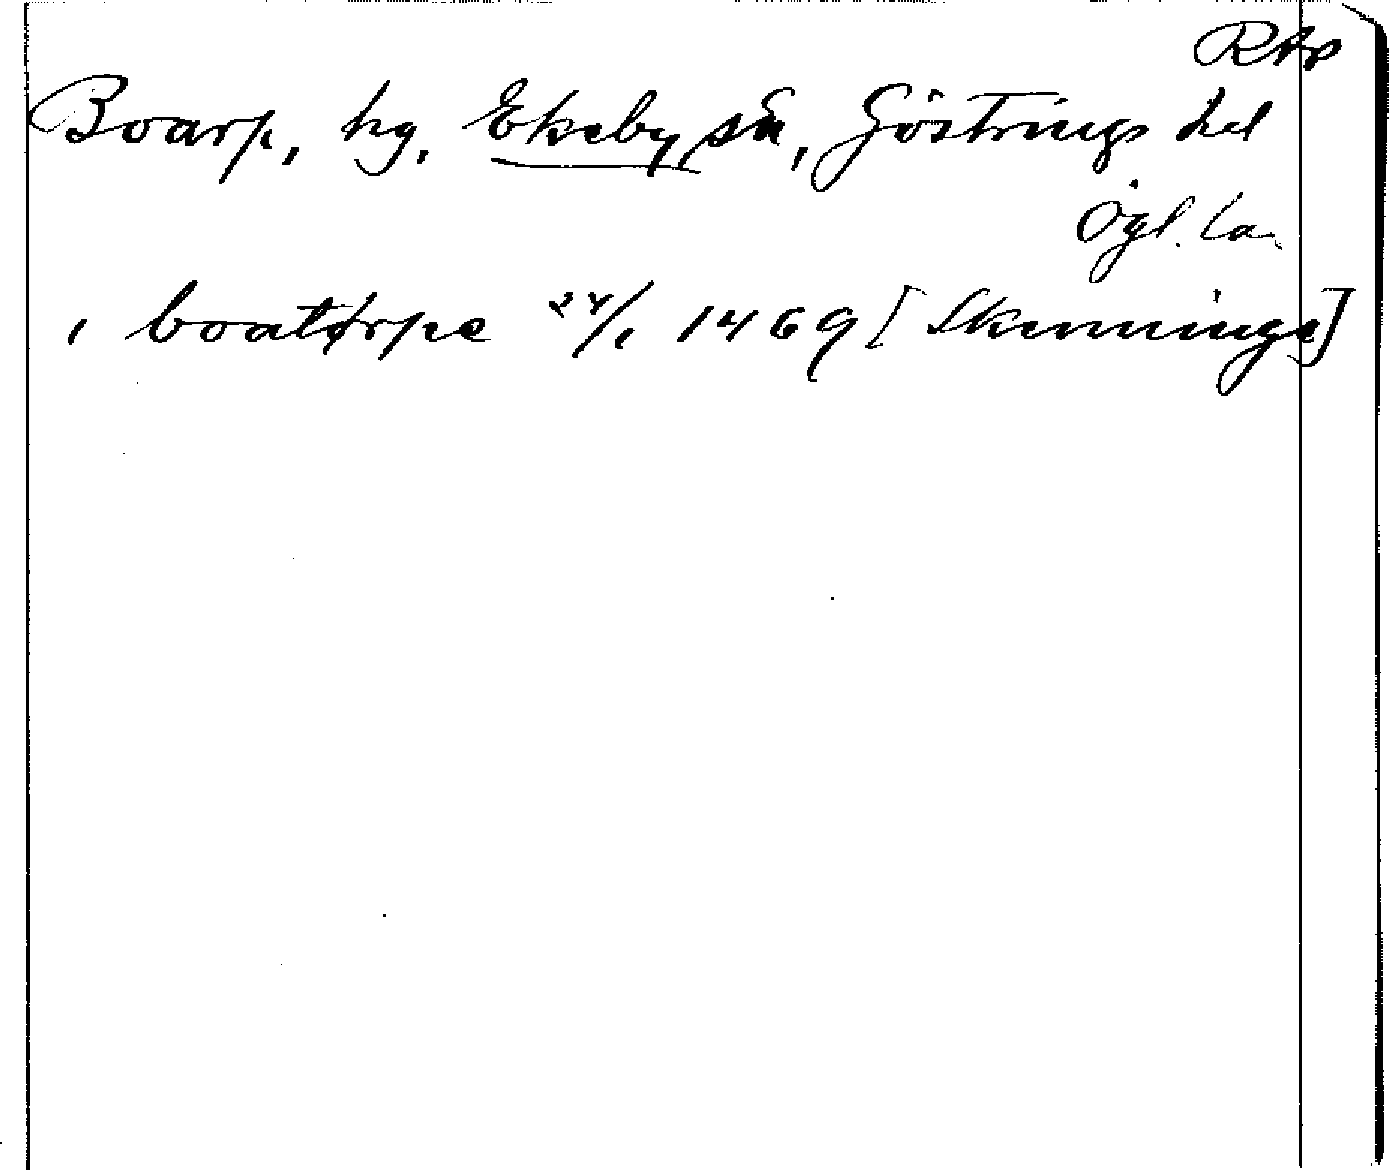 RAp
Boarp, hg, Ekeby sn, Göstrings hd
Ögl. la.
i boatørpe 24/1 1469 [Skenninge]